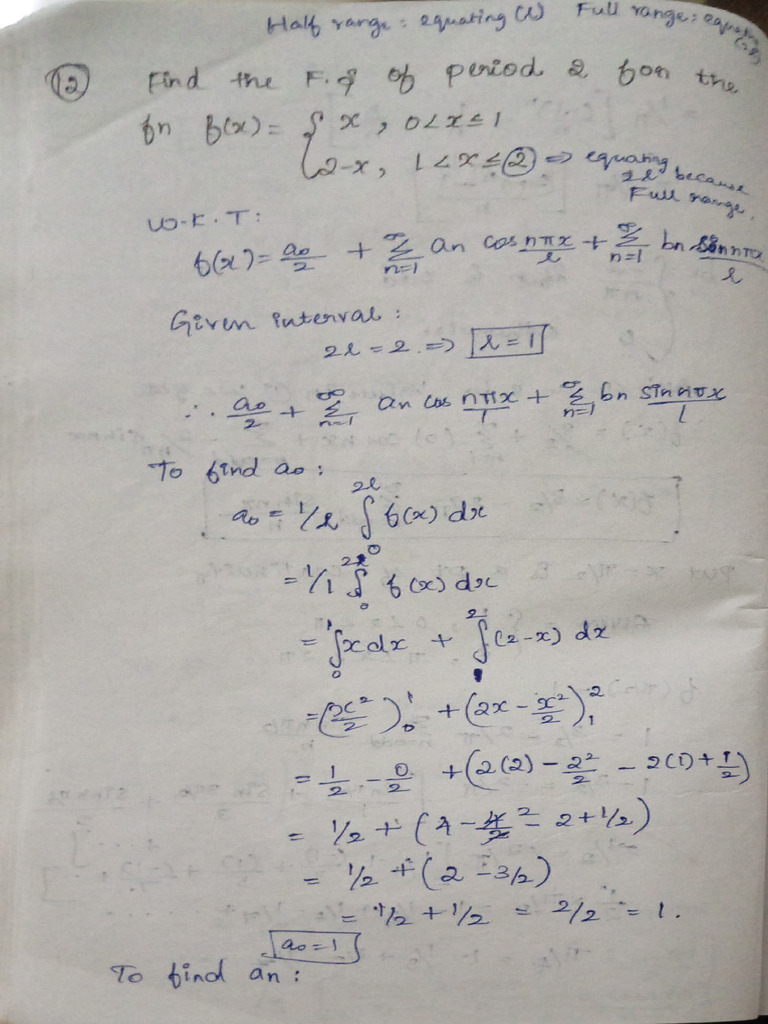 Half range: equating (l) Full range: equating (2l)
(12) Find the F.S of period 2 for the
fn f(x) = { x , 0<x≤1
2-x, 1<x≤(2) => equating 2l because Full range.
W.K.T:
f(x) = a₀/2 + Σ_{n=1}^∞ an cos nπx/l + Σ_{n=1}^∞ bn sin nπx/l
Given interval:
2l = 2 => l = 1
∴ a₀/2 + Σ_{n=1}^∞ an cos nπx/1 + Σ_{n=1}^∞ bn sin nπx/1
To find a₀:
a₀ = 1/l ∫₀^{2l} f(x) dx
= 1/1 ∫₀² f(x) dx
= ∫₀¹ x dx + ∫₁² (2-x) dx
= (x²/2)₀¹ + (2x - x²/2)₁²
= 1/2 - 0/2 + (2(2) - 2²/2 - 2(1) + 1/2)
= 1/2 + (4 - 4/2 2 - 2 + 1/2)
= 1/2 + (2 - 3/2)
= 1/2 + 1/2 = 2/2 = 1.
a₀ = 1
To find an: